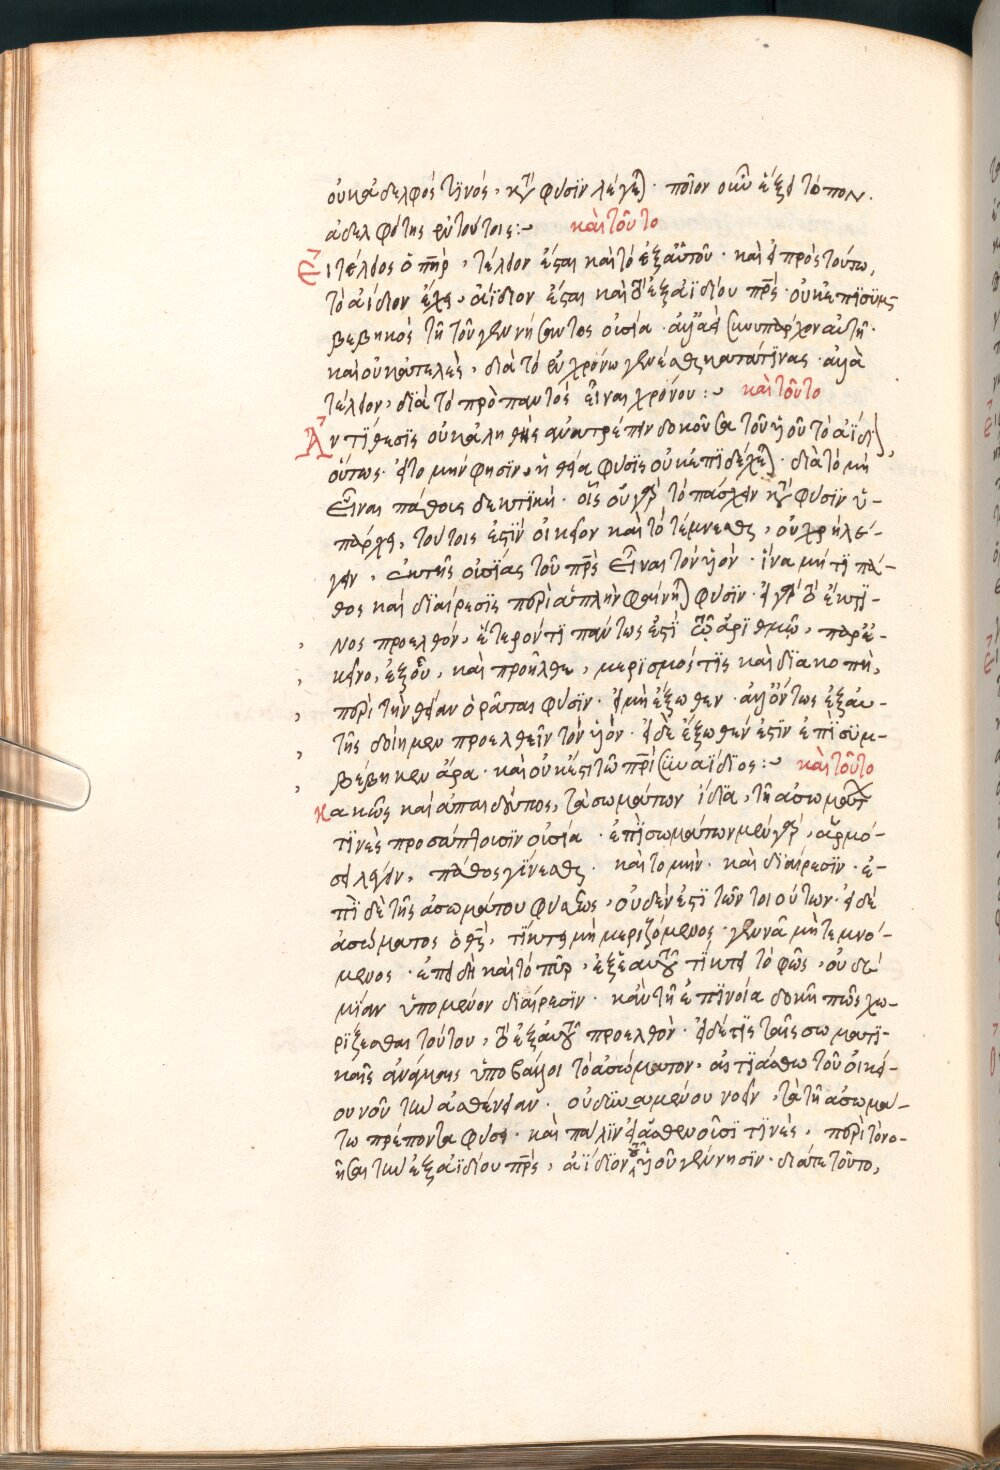 οὐκ ἀδελφός τϊνός, κ(α)τ(ὰ) φύσϊν λέγετ(αι)· ποῖον οὖν ἕξει τόπον
ἀδελφότης ἐν τούτοις :- καὶ τοῦτο
Εἰ τέλειος ὁ π(ατ)ήρ, τέλειον ἔσται καὶ τὸ ἐξ αὐτοῦ· καὶ εἰ πρὸς τούτω,
τὸ ἀίδιον ἔχει, ἀΐδιον ἔσται καὶ τὸ ἐξ ἀϊδίου π(ατ)ρός· οὐκ ἐπϊσϋμ
βεβηκὸς τῆ τοῦ γεννήσαντος οὐσία· ἀλλ' ἀεὶ συνυπάρχον αὐτῆ·
καὶ οὐκ ἀτελὲς, διὰ τὸ ἐν χρόνω γενέσθαι κατά τϊνας· ἀλλὰ
τέλειον, διὰ τὸ πρὸ παντὸς εἶναι χρόνου :- καὶ τοῦτο
Ἀντίθεσϊς οὐκ ἀληθὴς ἀνατρέπειν δοκοῦσα τοῦ υἱοῦ τὸ ἀΐδι(ον),
οὕτως· εἴτο μήν φησϊν, ἡ θεία φύσϊς οὐκ ἐπϊδέχετ(αι)· διὰ τὸ μὴ
εἶναι πάθους δεκτϊκή· οἷς οὖν γὰρ τὸ πάσχειν κ(α)τ(ὰ) φύσϊν ὑ-
πάρχει, τούτοις ἐστϊν οἰκεῖον καὶ τὸ τέμνεσθαι, οὐ χρὴ λέ-
γειν, ἐκ τῆς οὐσίας τοῦ π(ατ)ρὸς εἶναι τὸν υἱόν· ἵνα μή τι πά-
θος καὶ διαίρεσϊς περὶ ἁπλῆν φαίνητ(αι) φύσϊν· εἰ γὰρ τὸ ἔκ τϊ-
νος προελθόν, ἕτερόν τι πάντως ἐστϊ τῶ ἀρϊθμῶ, παρ' ἐ-
κεῖνο, ἐξ οὗ, καὶ προῆλθε, μερϊσμός τϊς καὶ διακοπὴ,
περὶ τὴν θείαν ὁρᾶται φύσϊν· εἰ μὴ ἔξωθεν· ἀλλ' ὄντως ἐξ αὐ-
τῆς δοίημεν προελθεῖν τὸν υἱόν· εἰ δὲ ἔξωθέν ἐστϊν ἐπϊσϋμ-
βέβηκεν ἄρα· καὶ οὐκ ἔστι τῶ π(ατ)ρὶ συναΐδϊος :- καὶ τοῦτο
Κακῶς καὶ ἀπαιδεύτως, τὰ σωμάτων ἴδια, τῆ ἀσωμάτ(ω)
τϊνὲς προσάπτουσϊν οὐσία· ἐπὶ σωμάτων μὲν γὰρ, ἁρμό-
σει λέγειν, πάθος γίνεσθαι· καὶ τομὴν· καὶ διαίρεσϊν· ἐ-
πὶ δὲ τῆς ἀσωμάτου φύσεως, οὐδέν ἐστϊ τῶν τοιούτων· εἰ δὲ
ἀσώματος ὁ θ(εό)ς, τίκτει μὴ μερϊζόμενος· γεννᾶ μὴ τεμνό-
μενος· ἐπεὶ δὴ καὶ τὸ πῦρ, ἐξ ἑαυτοῦ τίκτει τὸ φῶς, οὐδε-
μίαν ὑπομένον διαίρεσϊν· κἂν τῆ ἐπϊνοία δοκῆ πως χω-
ρϊζεσθαι τούτου, τὸ ἐξ αὐτοῦ προελθὸν· εἰ δέ τϊς ταῖς σωματϊ-
καῖς ἀνάγκαις ὑποβάλλοι τὸ ἀσώματον, αἰτϊάσθω τοῦ οἰκεί-
ου νοῦ τὴν ἀσθένειαν· οὐ δυναμένου νοεῖν, τὰ τῆ ἀσωμά-
τω πρέποντα φύσει· καὶ πάλϊν εἰ ἀσθενοῦσί τϊνὲς, περὶ τὸ νο-
ῆσαι τὴν ἐξ ἀϊδίου π(ατ)ρὸς, ἀΐδϊον τοῦ υἱοῦ γέννησϊν· διά τε τοῦτο,